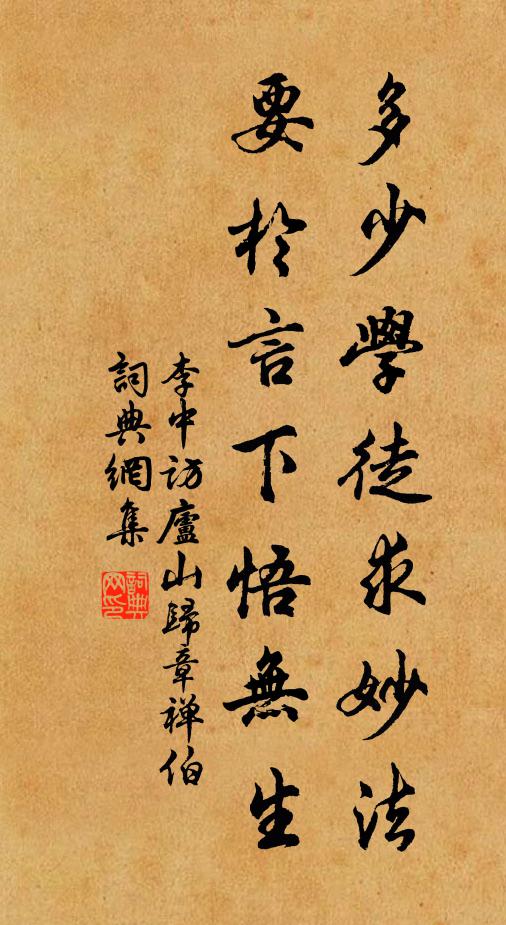 多少學徒求妙法
要於言下悟無生
李中訪廬山歸章禅伯
詞典網集
詞典网印